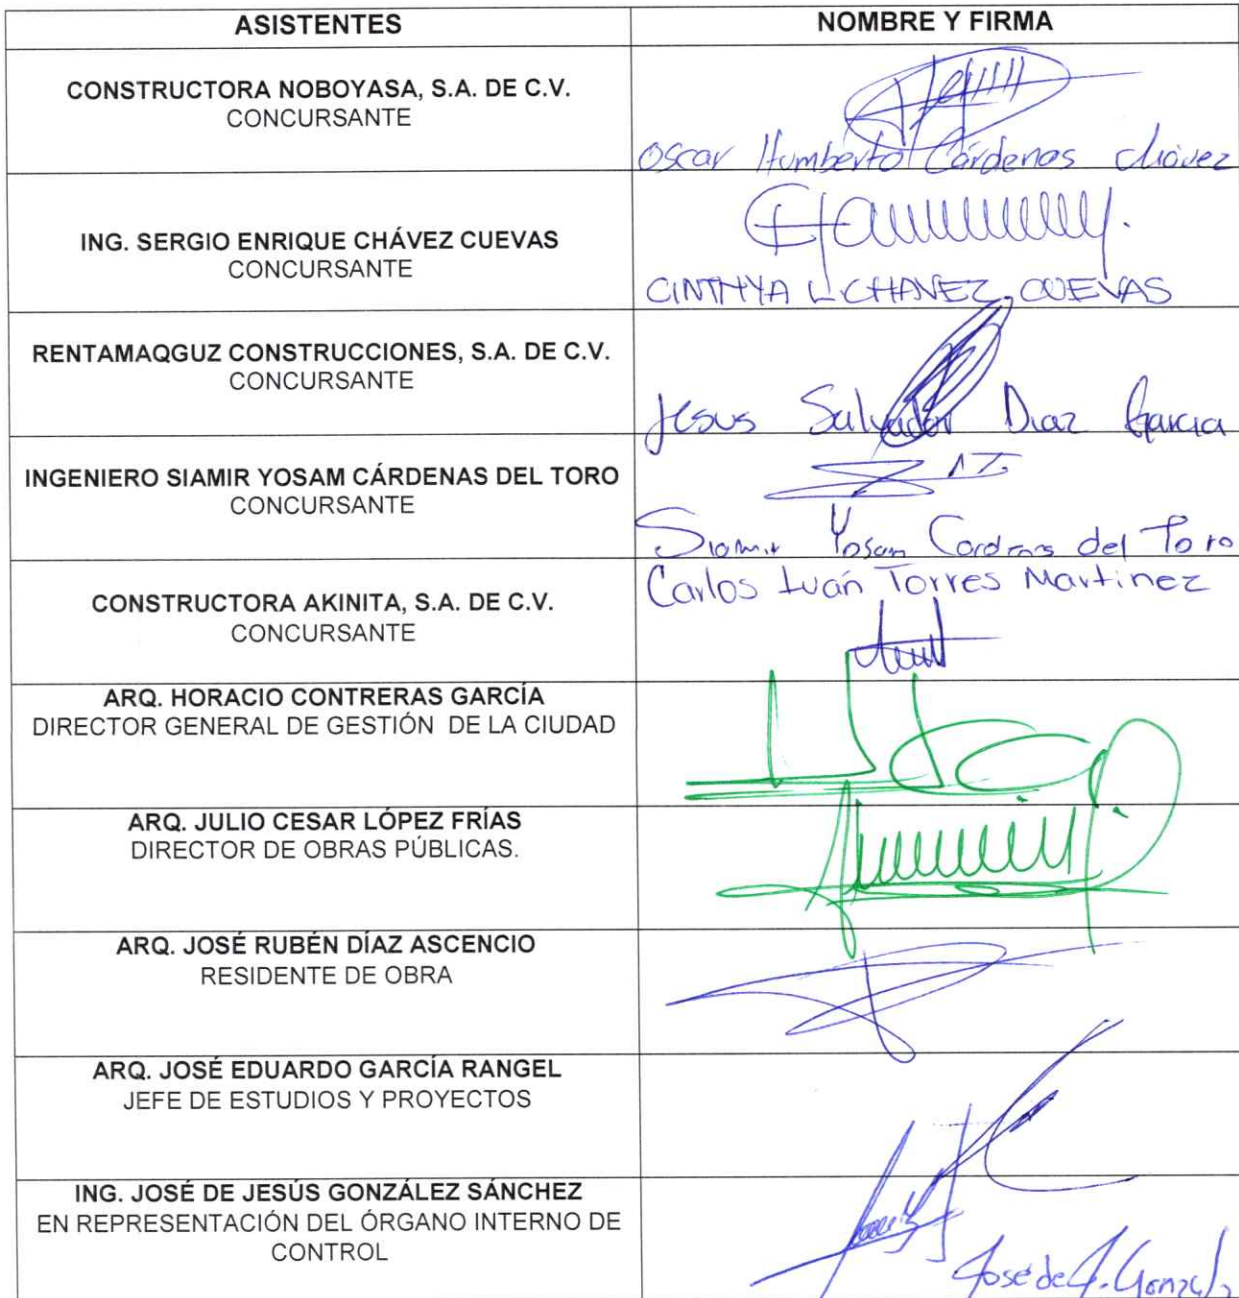 ASISTENTES NOMBRE Y FIRMA
CONSTRUCTORA NOBOYASA, S.A. DE C.V.
CONCURSANTE
Oscar Humberto Cárdenas Chávez
ING. SERGIO ENRIQUE CHÁVEZ CUEVAS
CONCURSANTE
CINTHYA L CHAVEZ CUEVAS
RENTAMAQGUZ CONSTRUCCIONES, S.A. DE C.V.
CONCURSANTE
Jesus Salvador Diaz Garcia
INGENIERO SIAMIR YOSAM CÁRDENAS DEL TORO
CONCURSANTE
Siamir Yosam Cardenas del Toro
Carlos Iván Torres Martinez
CONSTRUCTORA AKINITA, S.A. DE C.V.
CONCURSANTE
ARQ. HORACIO CONTRERAS GARCÍA
DIRECTOR GENERAL DE GESTIÓN DE LA CIUDAD
ARQ. JULIO CESAR LÓPEZ FRÍAS
DIRECTOR DE OBRAS PÚBLICAS.
ARQ. JOSÉ RUBÉN DÍAZ ASCENCIO
RESIDENTE DE OBRA
ARQ. JOSÉ EDUARDO GARCÍA RANGEL
JEFE DE ESTUDIOS Y PROYECTOS
ING. JOSÉ DE JESÚS GONZÁLEZ SÁNCHEZ
EN REPRESENTACIÓN DEL ÓRGANO INTERNO DE
CONTROL
José de J.